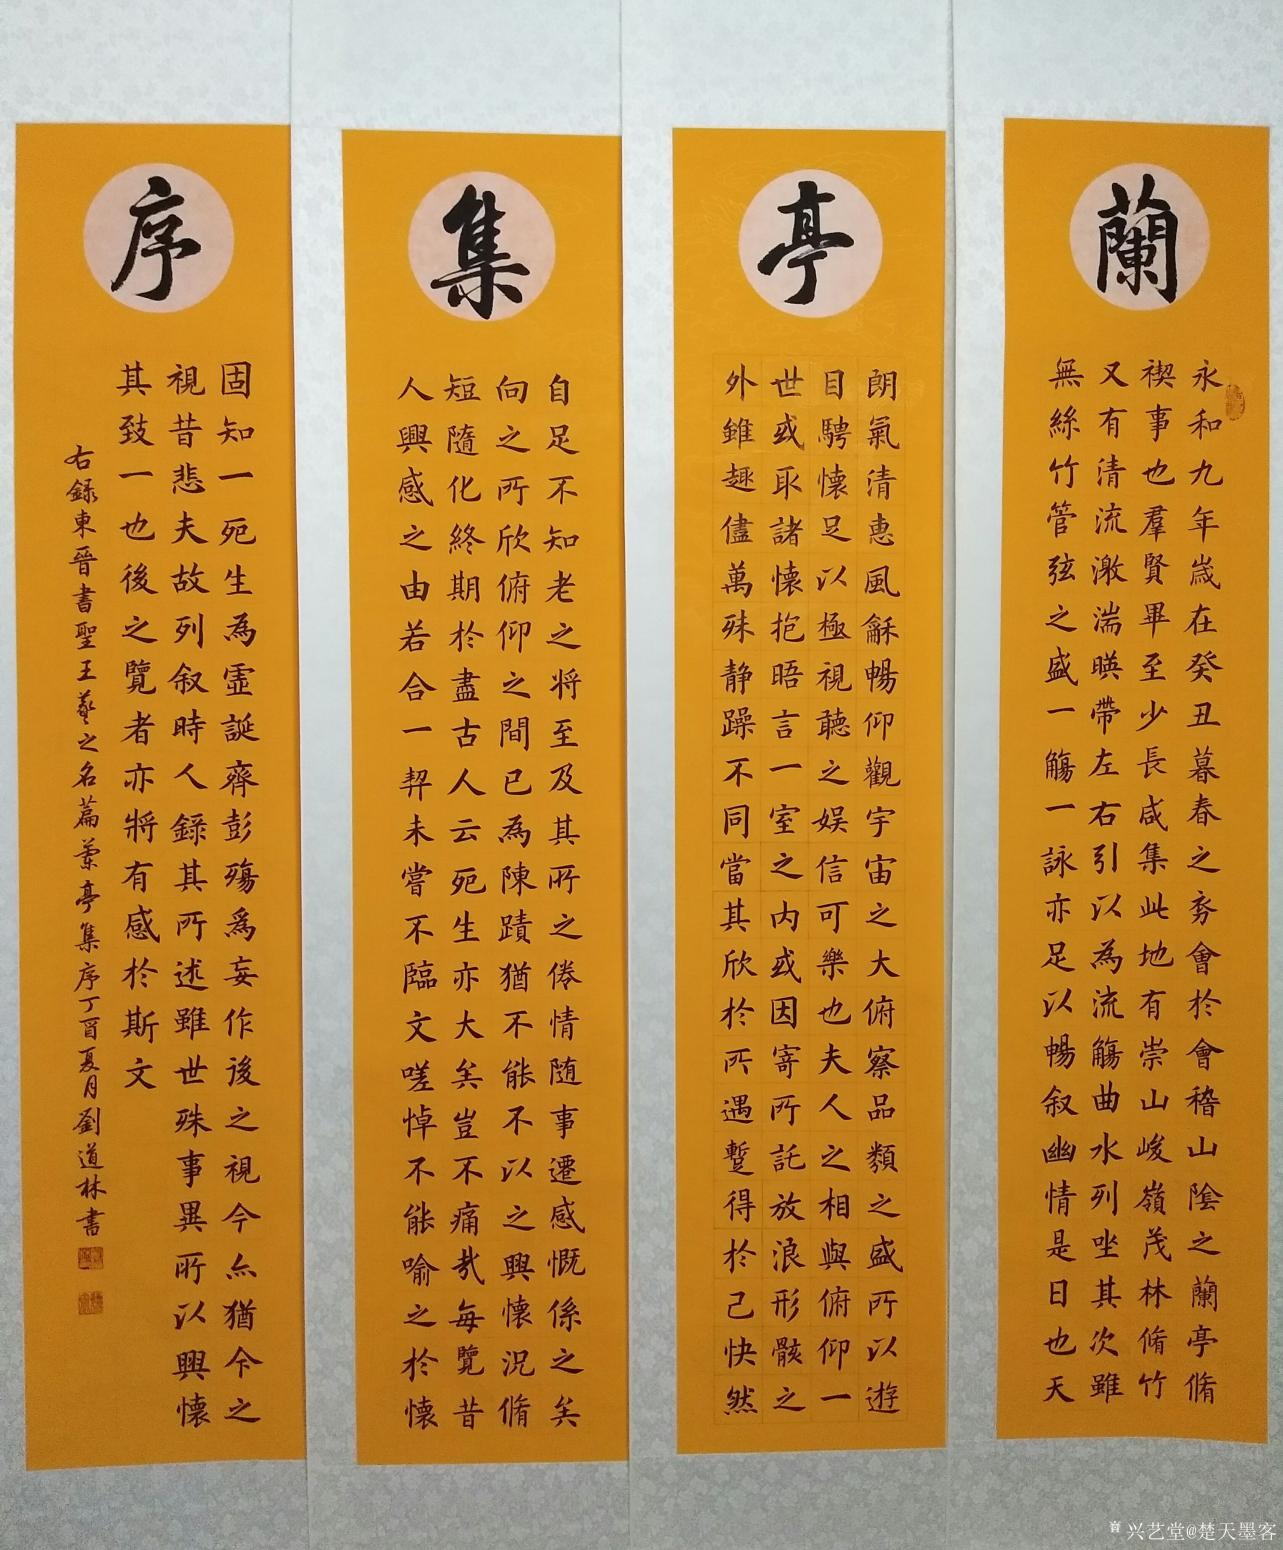 蘭
永和九年歲在癸丑暮春之初會於會稽山陰之蘭亭脩
禊事也羣賢畢至少長咸集此地有崇山峻嶺茂林脩竹
又有清流激湍暎帶左右引以為流觴曲水列坐其次雖
無絲竹管弦之盛一觴一詠亦足以暢叙幽情是日也天
亭
朗氣清惠風龢暢仰觀宇宙之大俯察品類之盛所以遊
目騁懷足以極視聽之娱信可樂也夫人之相與俯仰一
世或取諸懷抱晤言一室之内或因寄所託放浪形骸之
外雖趣儘萬殊静躁不同當其欣於所遇蹔得於己快然
集
自足不知老之将至及其所之倦情随事遷感慨係之矣
向之所欣俯仰之間已為陳蹟猶不能不以之興懷況脩
短隨化終期於盡古人云死生亦大矣豈不痛哉每覽昔
人興感之由若合一契未嘗不臨文嗟悼不能喻之於懷
序
固知一死生為虛誕齊彭殤為妄作後之視今亦猶今之
視昔悲夫故列叙時人錄其所述雖世殊事異所以興懷
其致一也後之覽者亦將有感於斯文
右錄東晉書聖王羲之名篇蘭亭集序丁酉夏月劉道林書
兴艺堂@楚天墨客